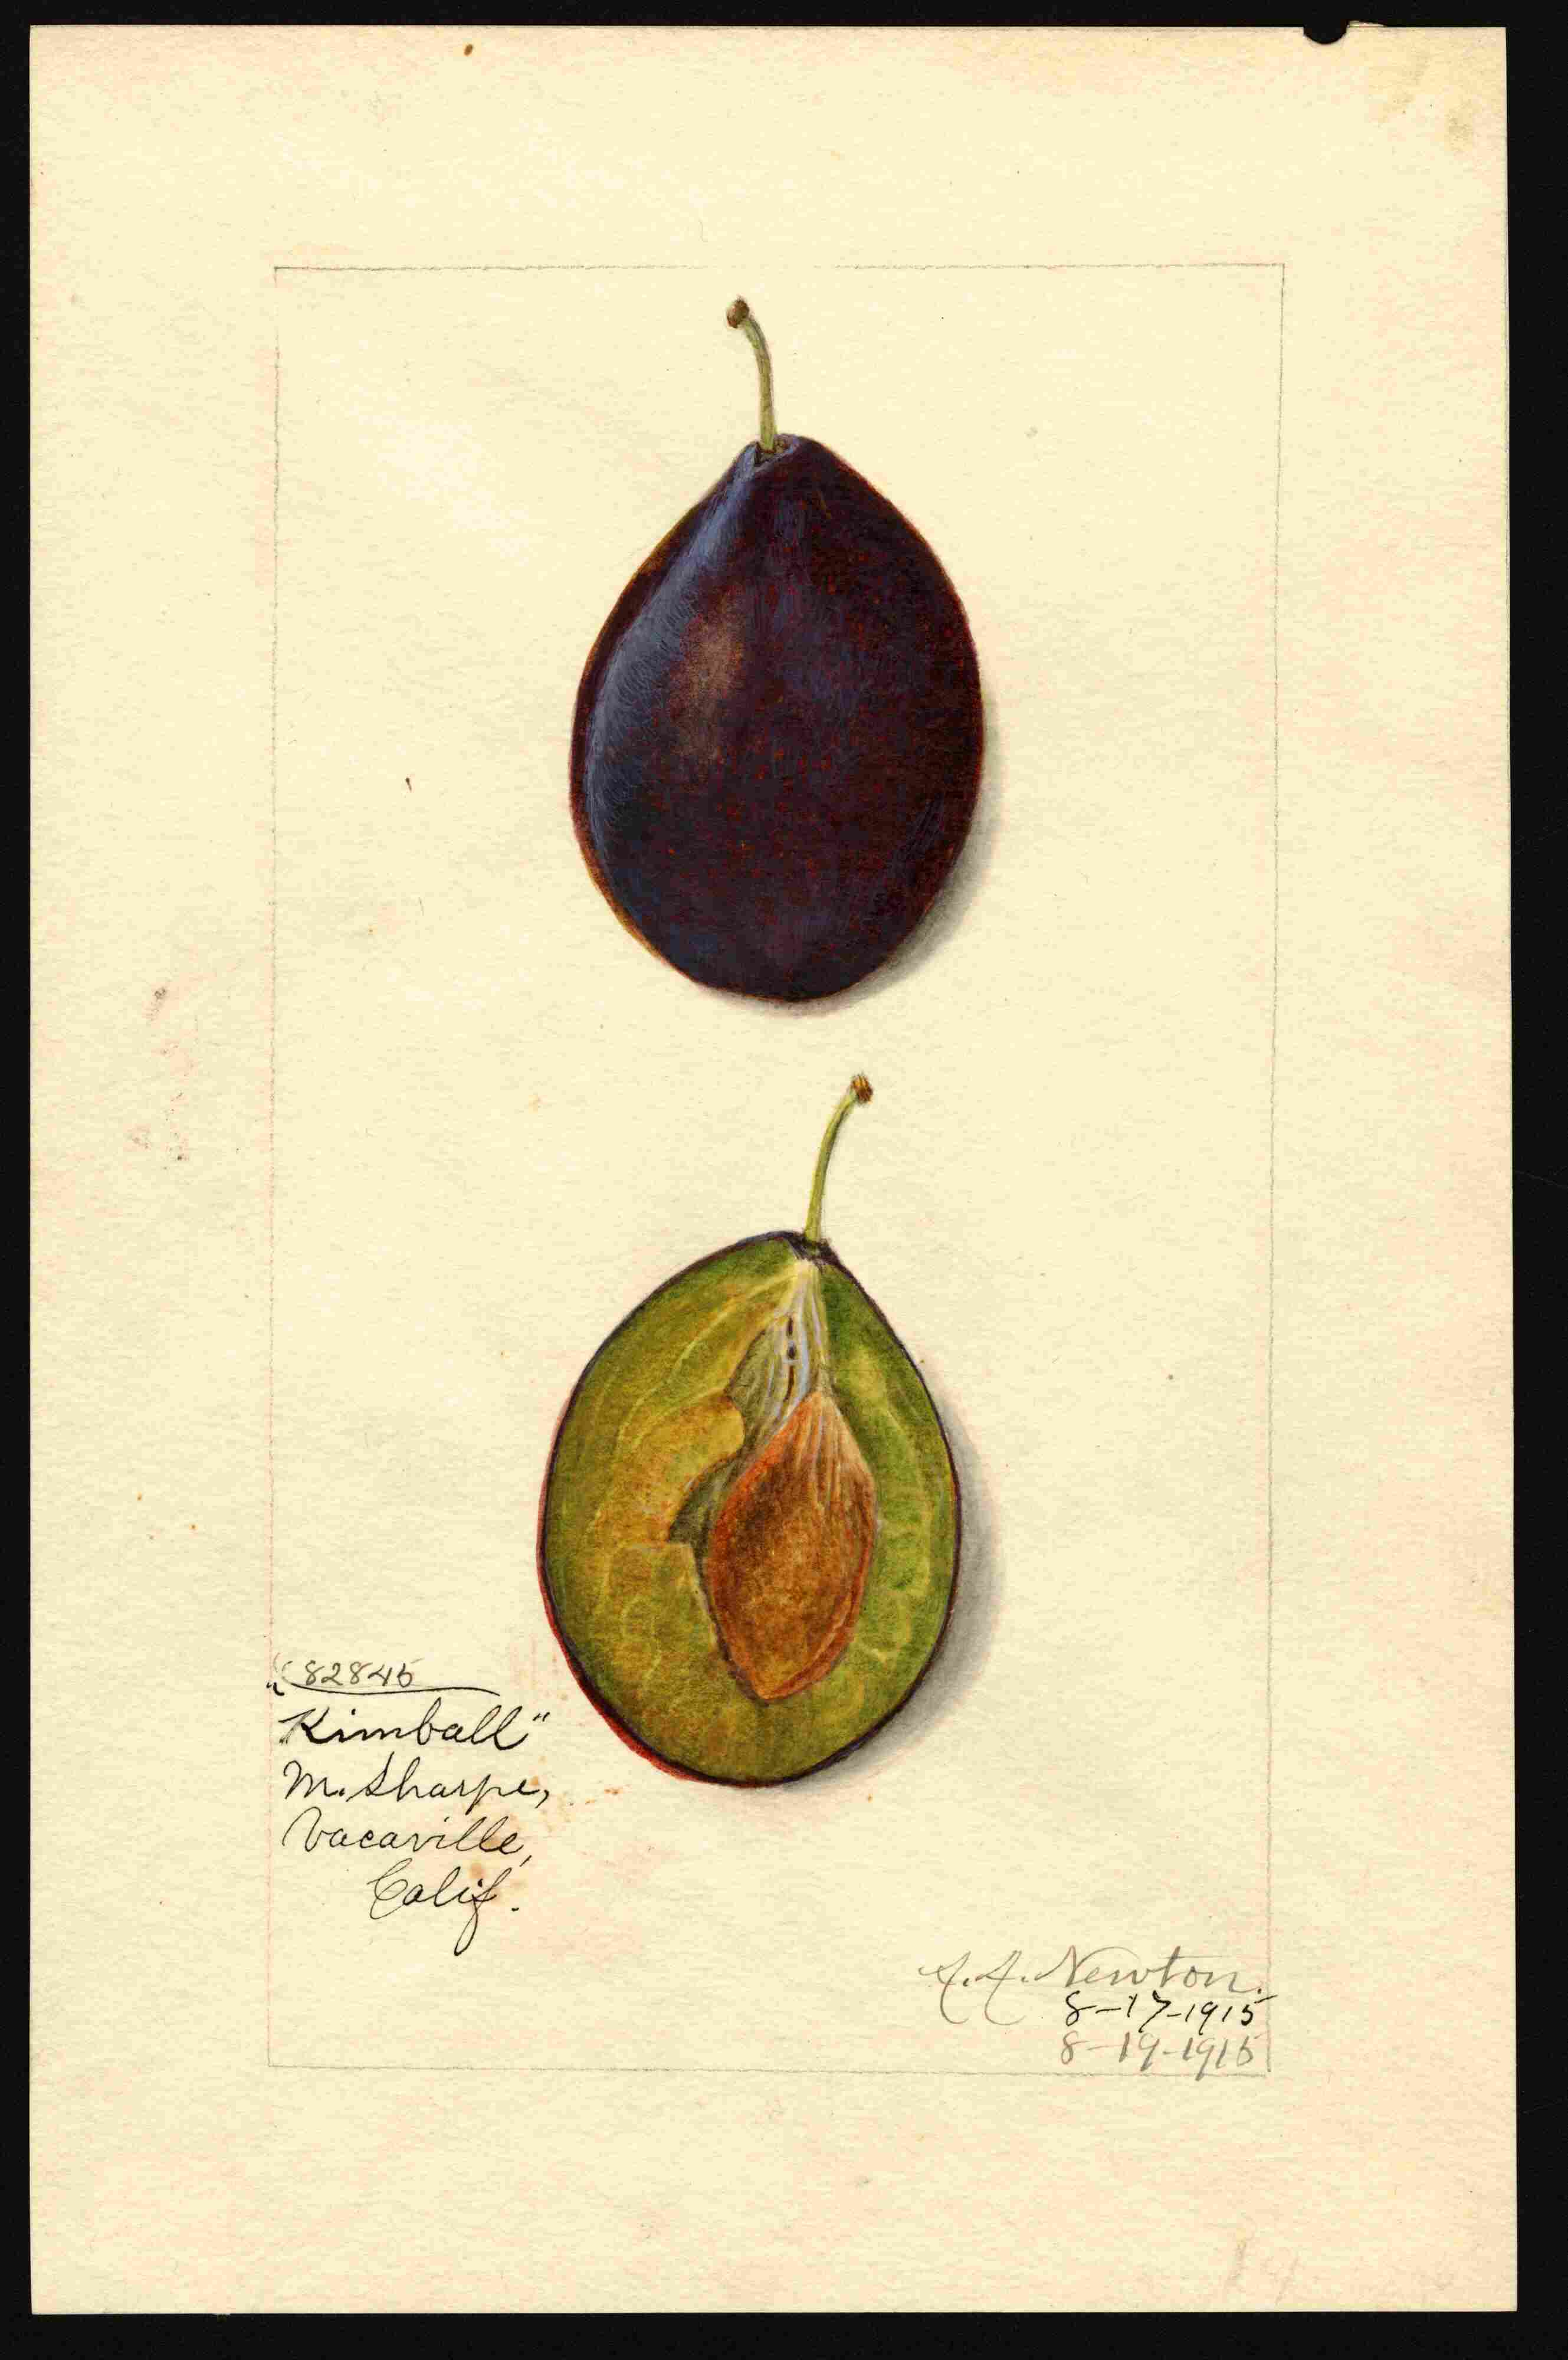 82845
"Kimball"
M. Sharpe,
Vacaville,
Calif.
A.A. Newton.
8-17-1915
8-19-1915